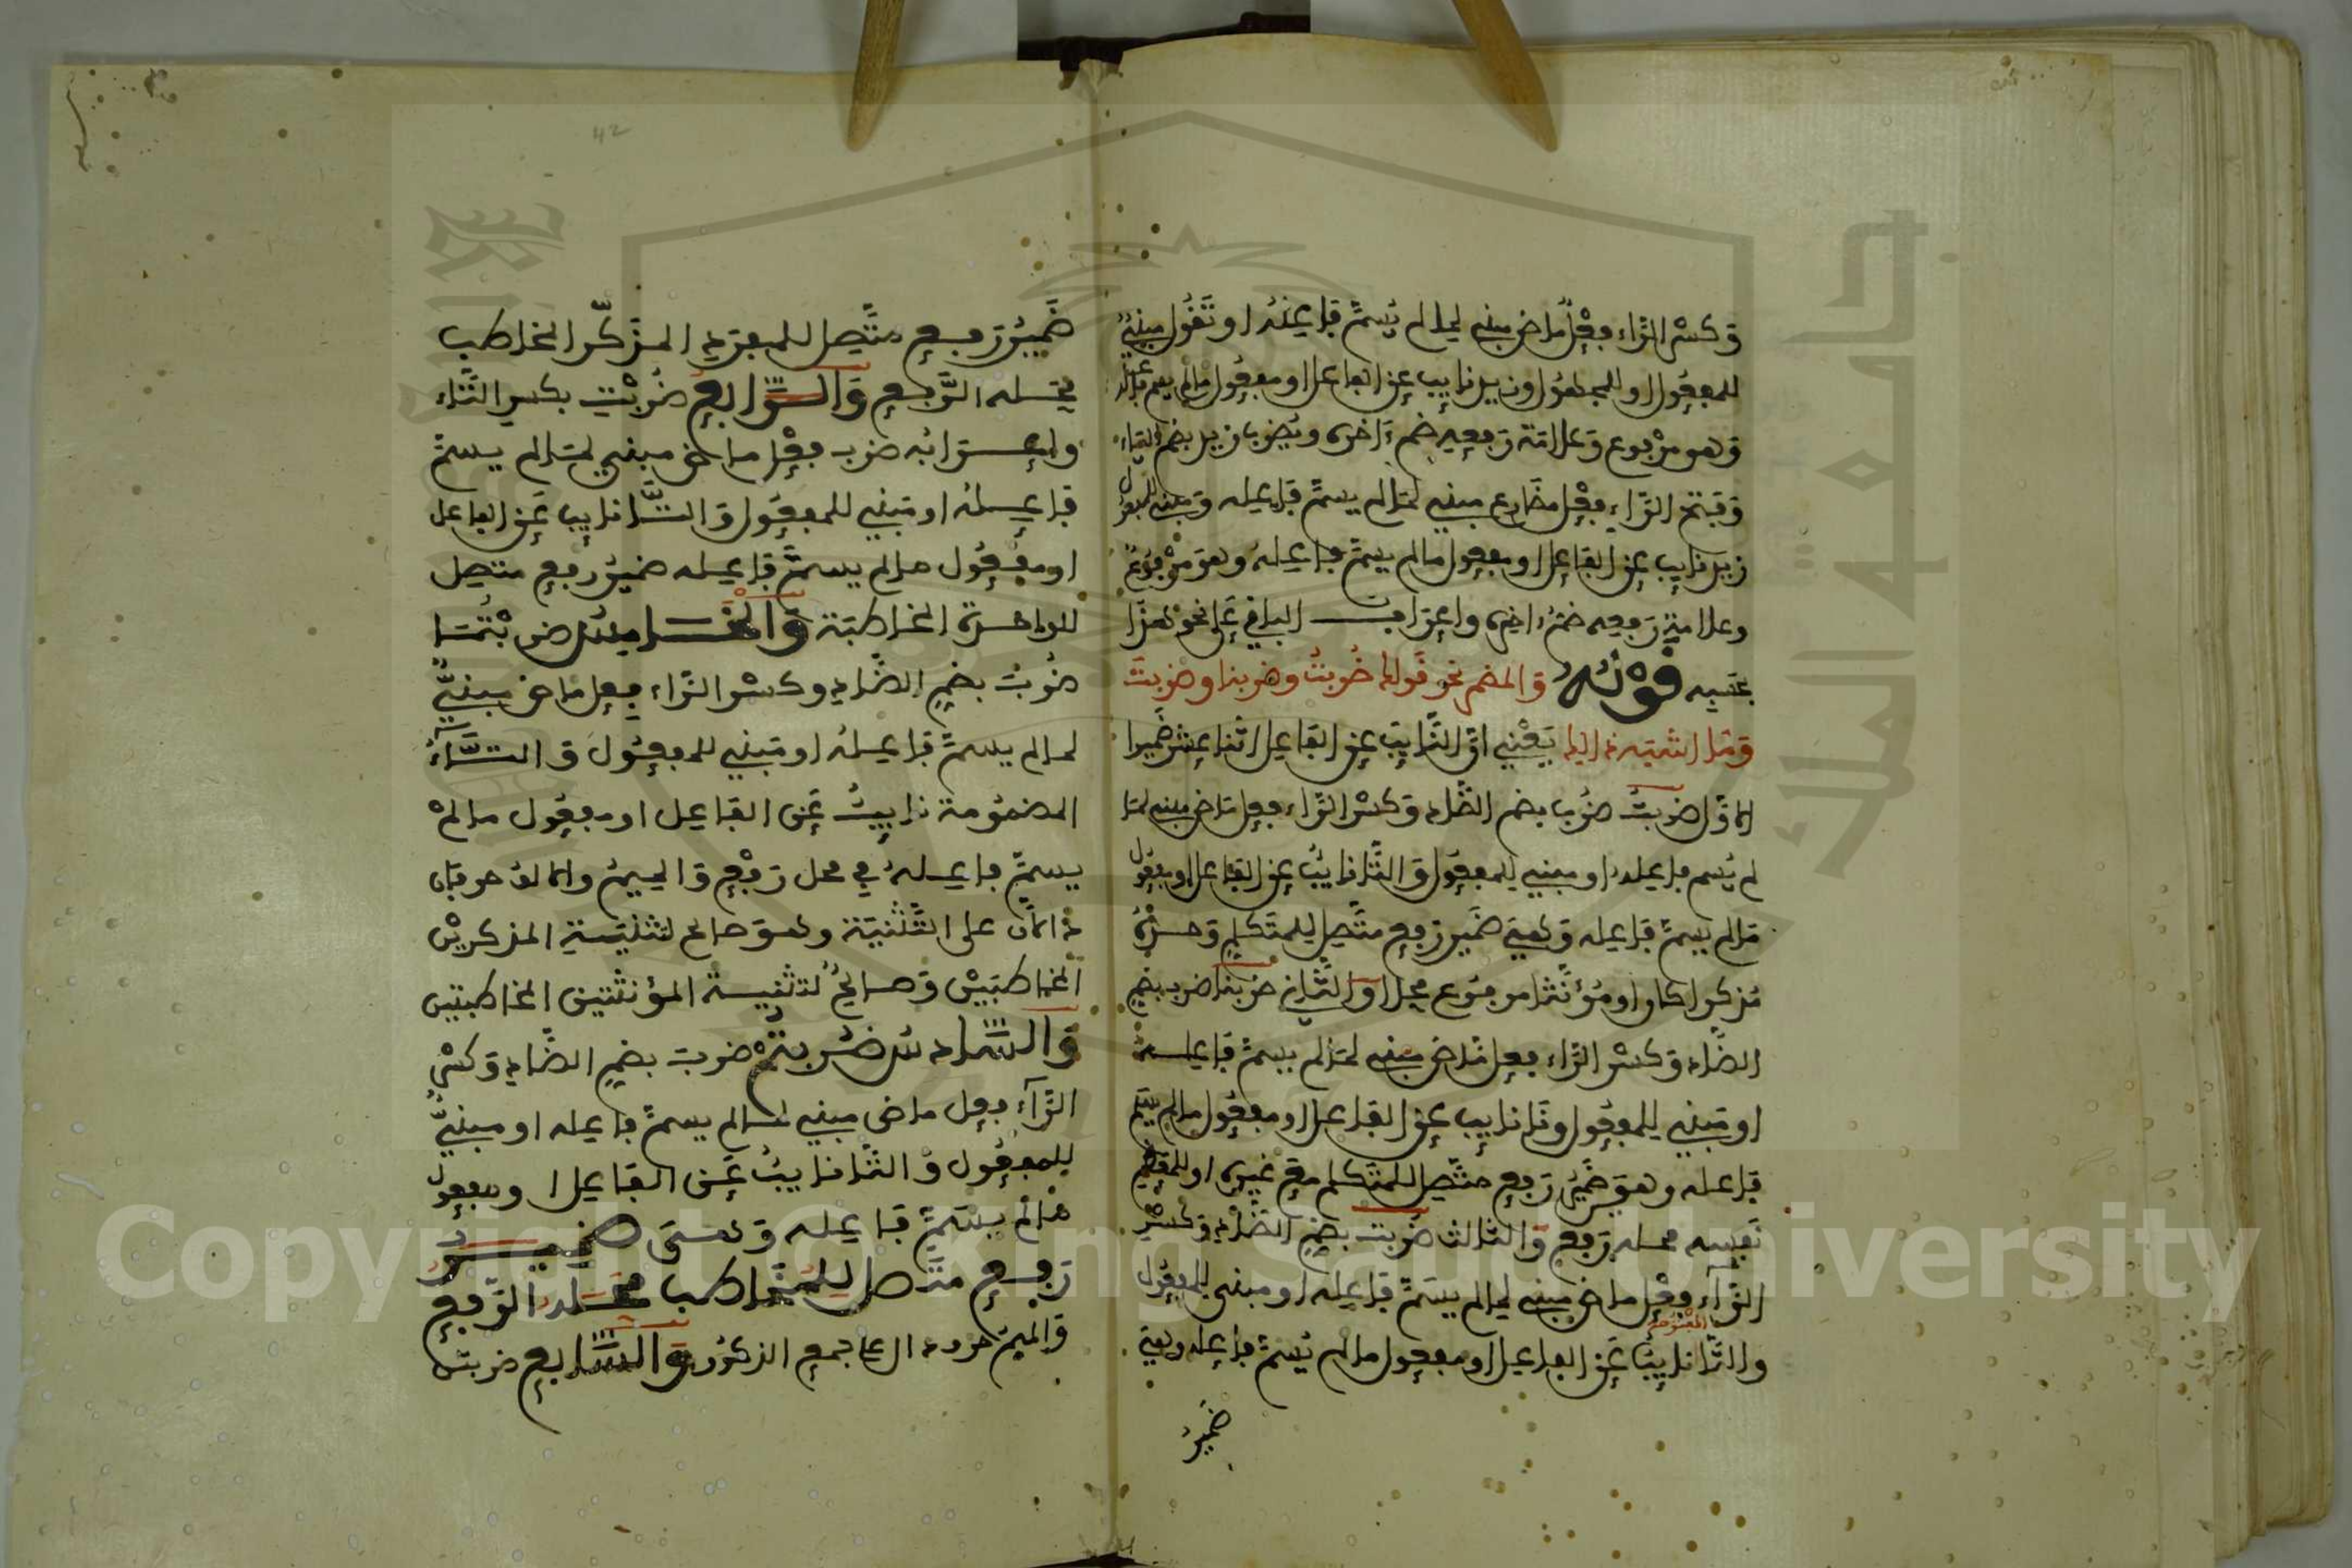 وكسر الراء فعل ماض مبني لما لم يسم فاعله او تقول مبني
للمفعول او للمجهول وزيد نايب عن الفاعل او مفعول مالم يسم فاعله
وهو مرفوع وعلامة رفعه ضم ءاخره ويضرب زيد بضم الياء
وفتح الراء فعل مضارع مبني لما لم يسم فاعله ومبني للمفعول
زيد نايب عن الفاعل او مفعول مالم يسم فاعله وهو مرفوع
وعلامة رفعه ضم ءاخره واعراب الباقي على نحو هذا
قوله والمضمر نحو قولك ضربت وضربنا وضربت
وما اشبه ذالك يعني ان النايب عن الفاعل اثنا عشر ضميرا
الاول ضربت ضرب بضم الضاد وكسر الراء فعل ماض مبني لما
لم يسم فاعله او مبني للمفعول والتا نايب عن الفاعل او مفعول
مالم يسم فاعله وهي ضمير رفع متصل للمتكلم وحده
مذكرا كان او مؤنثا مرفوع محلا والثاني ضربنا ضرب بضم
الضاد وكسر الراء فعل ماض مبني لما لم يسم فاعله
او مبني للمفعول ونا نايب عن الفاعل او مفعول مالم يسم
فاعله وهو ضمير رفع متصل للمتكلم مع غيره او للمعظم
نفسه محله رفع والثالث ضربت بضم الضاد وكسر
الراء فعل ماض مبني لما لم يسم فاعله او مبني للمفعول
والتا المفتوحة نايب عن الفاعل او مفعول مالم يسم فاعله وهي
ضمير
42
ضمير رفع متصل للمفرد المذكر المخاطب
محله الرفع والرابع ضربت بكسر التاء
واعرابه ضرب فعل ماض مبني لما لم يسم
فاعله او مبني للمفعول والتا نايب عن الفاعل
او مفعول مالم يسم فاعله ضمير رفع متصل
للواحدة المخاطبة والخامس ضربتما
ضرب بضم الضاد وكسر الراء فعل ماض مبني
لما لم يسم فاعله او مبني للمفعول والتاء
المضمومة نايب عن الفاعل او مفعول مالم
يسم فاعله في محل رفع والميم والالف حرفان
دالان على التثنية وهو صالح لتثنية المذكرين
المخاطبين وصالح لتثنية المؤنثتين المخاطبتين
والسادس ضربتم ضرب بضم الضاد وكسر
الراء فعل ماض مبني لما لم يسم فاعله او مبني
للمفعول والتا نايب عن الفاعل او مفعول
مالم يسم فاعله وهي ضمير
رفع متصل للمخاطب محله الرفع
والميم حرف دال على جمع الذكور والسابع ضربتن
Copyright © King Saud University